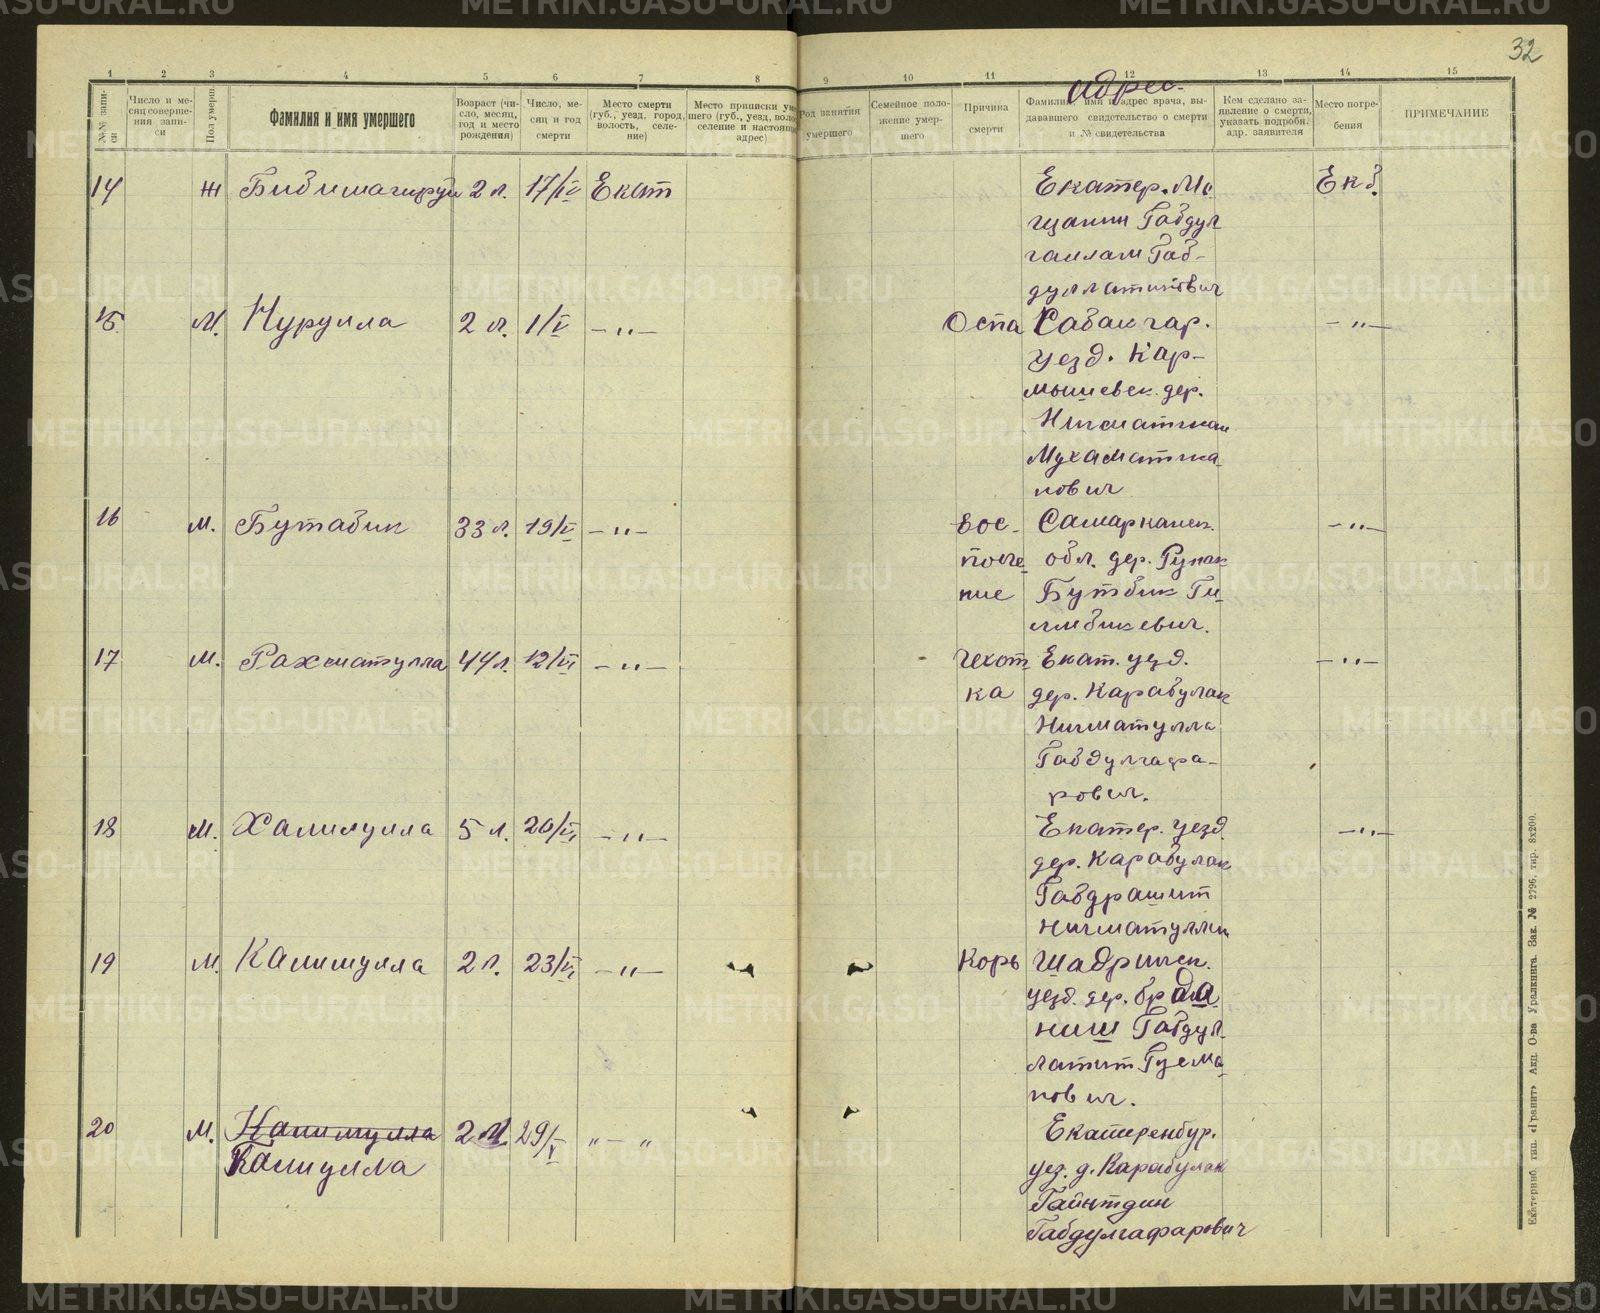 32
1 2 3 4 5 6 7 8 9 10 11 12 13 14 15
адрес.
№№ запи-
си
Число и ме-
сяц соверше-
ния запи-
си
Пол умерш.
Фамилия и имя умершего
Возраст (чи-
сло, месяц,
год и место
рождения)
Число, ме-
сяц и год
смерти
Место смерти
(губ., уезд, город,
волость, селе-
ние)
Место приписки уме
шего (губ., уезд, воло
селение и настоящ
адрес)
Род занятия
умершего
Семейное поло-
жение умер-
шего
Причина
смерти
Фамилия, имя и адрес врача, вы-
дававшего свидетельство о смерти
и № свидетельства
Кем сделано за-
явление о смерти,
указать подробн.
адр. заявителя
Место погре-
бения
ПРИМЕЧАНИЕ
14 ж 2 л. 17/IV Екат Екатер. Ме Екб.
щанин Габдул
Габ-
дуллатипович
15 М. Нурулла 2 л. 1/V - " - Оспа - " -
уезд. Кар-
мышевск. дер.
Нигматжан
Мухаматжа
нович
16 М. Бутабик 33 л. 19/V - " - Вос- Самаркандск. - " -
пале обл. дер.
ние Бутбик
17 М. Рахматулла 44 л. 12/VI - " - Чехот Екат. уезд. - " -
ка дер. Карабулак
Нигматулла
Габдулгафа-
рович.
18 М. Халиулла 5 л. 20/VI - " - Екатер. уезд. - " -
дер. Карабулак
Габдрашит
Нигматуллин
19 М. Калимулла 2 л. 23/VI - " - Корь Шадринск.
уезд. дер.
Габдул
латип Гусма
нович.
20 М. Калимулла 2 л. 29/V " - " Екатеренбур.
Галиулла уез. д. Карабулак
Гайнтдин
Габдулгафарович
Екатеринб. тип. «Гранит» Акц. О-ва Уралкнига. Зак. № 2796, тир. 8х200.
METRIKI.GASO-URAL.RU